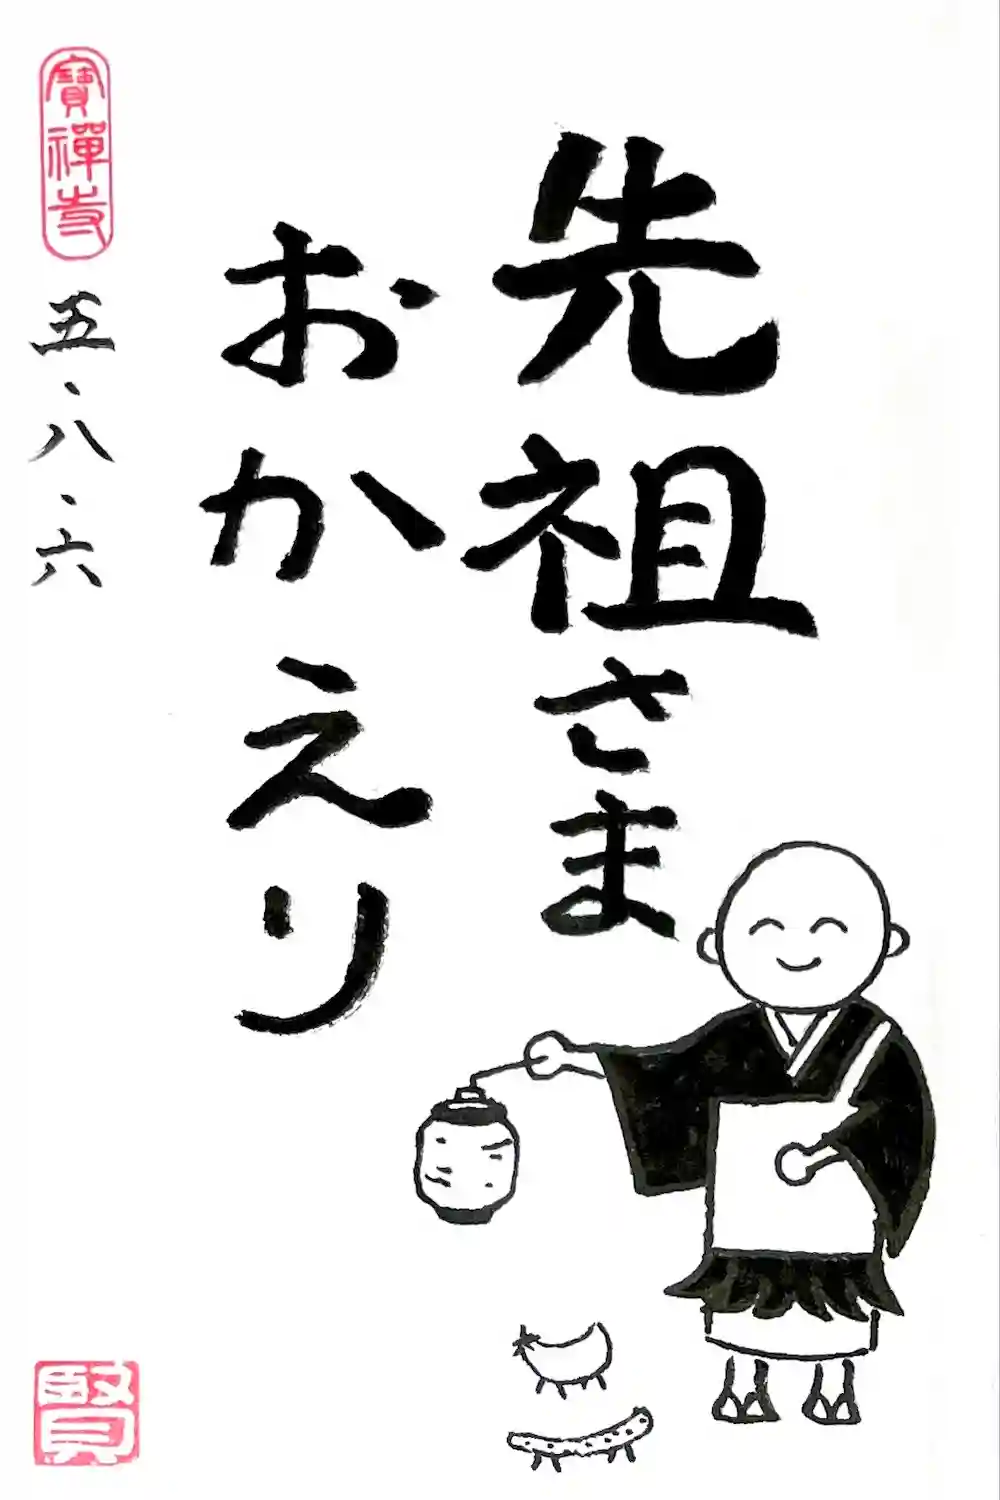 先祖さま
おかえり
寶禪寺
五・八・六
賢